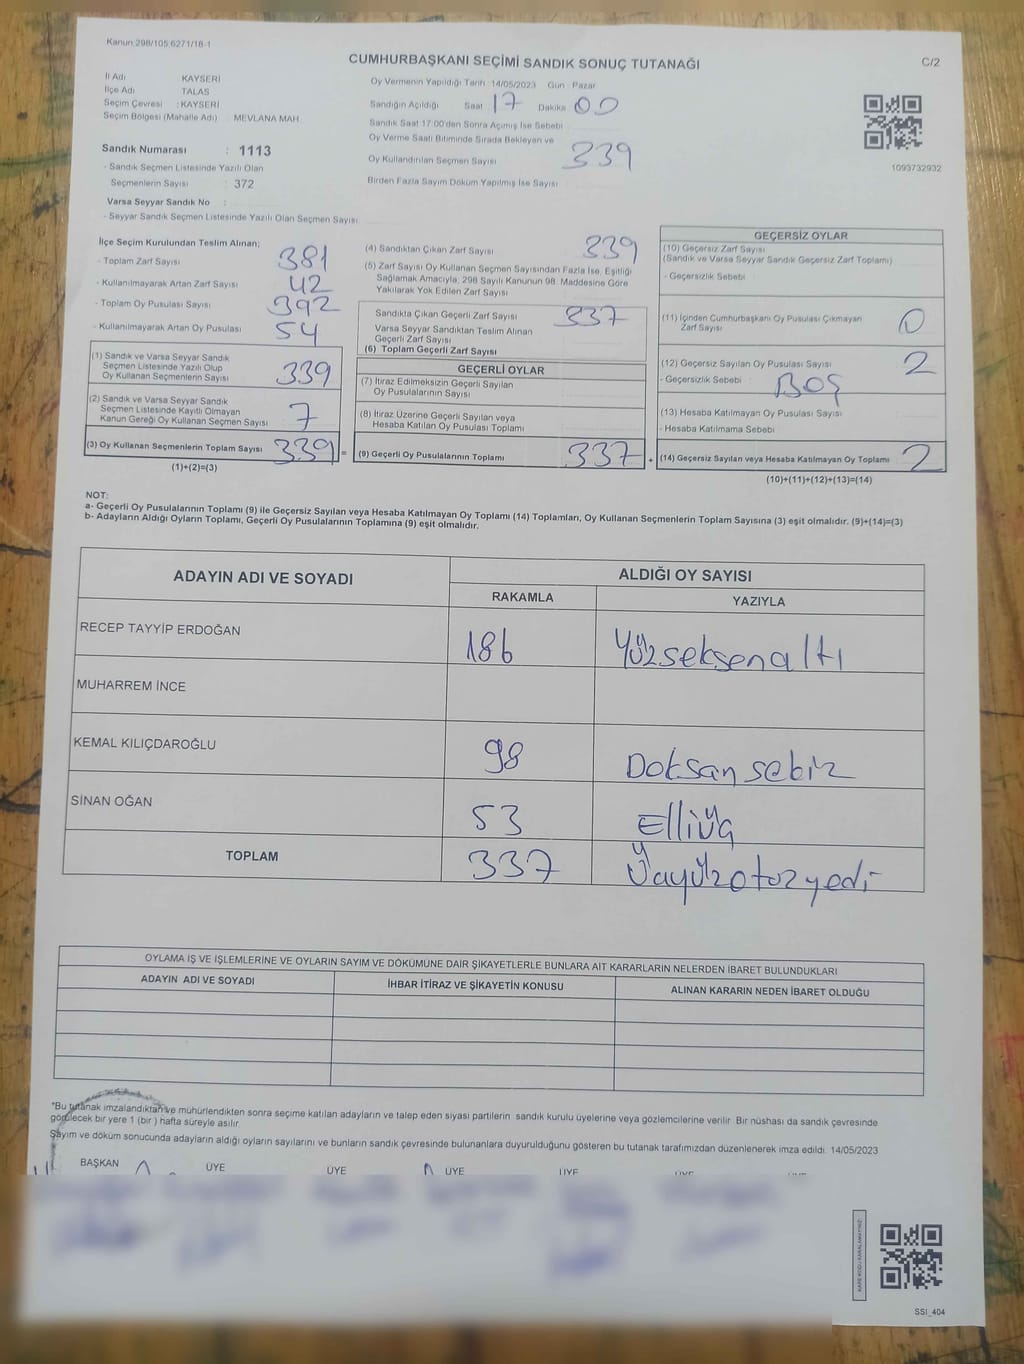 Kanun 298/105 6271/18-1
CUMHURBAŞKANI SEÇİMİ SANDIK SONUÇ TUTANAĞI
C/2
İl Adı : KAYSERİ
İlçe Adı : TALAS
Seçim Çevresi : KAYSERİ
Seçim Bölgesi (Mahalle Adı) : MEVLANA MAH.
Sandık Numarası : 1113
- Sandık Seçmen Listesinde Yazılı Olan
Seçmenlerin Sayısı : 372
Varsa Seyyar Sandık No :
- Seyyar Sandık Seçmen Listesinde Yazılı Olan Seçmen Sayısı
Oy Vermenin Yapıldığı Tarih : 14/05/2023 Gün : Pazar
Sandığın Açıldığı Saat : 17 Dakika : 00
Sandık Saat 17:00'den Sonra Açımış İse Sebebi
Oy Verme Saati Bitiminde Sırada Bekleyen ve
Oy Kullandırılan Seçmen Sayısı 339
Birden Fazla Sayım Döküm Yapılmış İse Sayısı
1093732932
İlçe Seçim Kurulundan Teslim Alınan;
- Toplam Zarf Sayısı 381
- Kullanılmayarak Artan Zarf Sayısı 42
- Toplam Oy Pusulası Sayısı 392
- Kullanılmayarak Artan Oy Pusulası 54
(1) Sandık ve Varsa Seyyar Sandık
Seçmen Listesinde Yazılı Olup
Oy Kullanan Seçmenlerin Sayısı 339
(2) Sandık ve Varsa Seyyar Sandık
Seçmen Listesinde Kayıtlı Olmayan
Kanun Gereği Oy Kullanan Seçmen Sayısı 7
(3) Oy Kullanan Seçmenlerin Toplam Sayısı 339 =
(1)+(2)=(3)
(4) Sandıktan Çıkan Zarf Sayısı 339
(5) Zarf Sayısı Oy Kullanan Seçmen Sayısından Fazla İse, Eşitliği
Sağlamak Amacıyla, 298 Sayılı Kanunun 98. Maddesine Göre
Yakılarak Yok Edilen Zarf Sayısı
Sandıkta Çıkan Geçerli Zarf Sayısı 337
Varsa Seyyar Sandıktan Teslim Alınan
Geçerli Zarf Sayısı
(6) Toplam Geçerli Zarf Sayısı
GEÇERLİ OYLAR
(7) İtiraz Edilmeksizin Geçerli Sayılan
Oy Pusulalarının Sayısı
(8) İtiraz Üzerine Geçerli Sayılan veya
Hesaba Katılan Oy Pusulası Toplamı
(9) Geçerli Oy Pusulalarının Toplamı 337 +
GEÇERSİZ OYLAR
(10) Geçersiz Zarf Sayısı
(Sandık ve Varsa Seyyar Sandık Geçersiz Zarf Toplamı)
- Geçersizlik Sebebi
(11) İçinden Cumhurbaşkanı Oy Pusulası Çıkmayan
Zarf Sayısı 0
(12) Geçersiz Sayılan Oy Pusulası Sayısı 2
- Geçersizlik Sebebi BOŞ
(13) Hesaba Katılmayan Oy Pusulası Sayısı
- Hesaba Katılmama Sebebi
(14) Geçersiz Sayılan veya Hesaba Katılmayan Oy Toplamı 2
(10)+(11)+(12)+(13)=(14)
NOT:
a- Geçerli Oy Pusulalarının Toplamı (9) ile Geçersiz Sayılan veya Hesaba Katılmayan Oy Toplamı (14) Toplamları, Oy Kullanan Seçmenlerin Toplam Sayısına (3) eşit olmalıdır. (9)+(14)=(3)
b- Adayların Aldığı Oyların Toplamı, Geçerli Oy Pusulalarının Toplamına (9) eşit olmalıdır.
ADAYIN ADI VE SOYADI
ALDIĞI OY SAYISI
RAKAMLA YAZIYLA
RECEP TAYYİP ERDOĞAN 186 Yüzseksenaltı
MUHARREM İNCE
KEMAL KILIÇDAROĞLU 98 Doksan sekiz
SİNAN OĞAN 53 Elliüç
TOPLAM 337 Üçyüzotuzyedi
OYLAMA İŞ VE İŞLEMLERİNE VE OYLARIN SAYIM VE DÖKÜMÜNE DAİR ŞİKAYETLERLE BUNLARA AİT KARARLARIN NELERDEN İBARET BULUNDUKLARI
ADAYIN ADI VE SOYADI İHBAR İTİRAZ VE ŞİKAYETİN KONUSU ALINAN KARARIN NEDEN İBARET OLDUĞU
*Bu tutanak imzalandıktan ve mühürlendikten sonra seçime katılan adayların ve talep eden siyasi partilerin sandık kurulu üyelerine veya gözlemcilerine verilir. Bir nüshası da sandık çevresinde
görülecek bir yere 1 (bir) hafta süreyle asılır.
Sayım ve döküm sonucunda adayların aldığı oyların sayılarını ve bunların sandık çevresinde bulunanlara duyurulduğunu gösteren bu tutanak tarafımızdan düzenlenerek imza edildi. 14/05/2023
BAŞKAN ÜYE ÜYE ÜYE ÜYE ÜYE ÜYE
SSI_404